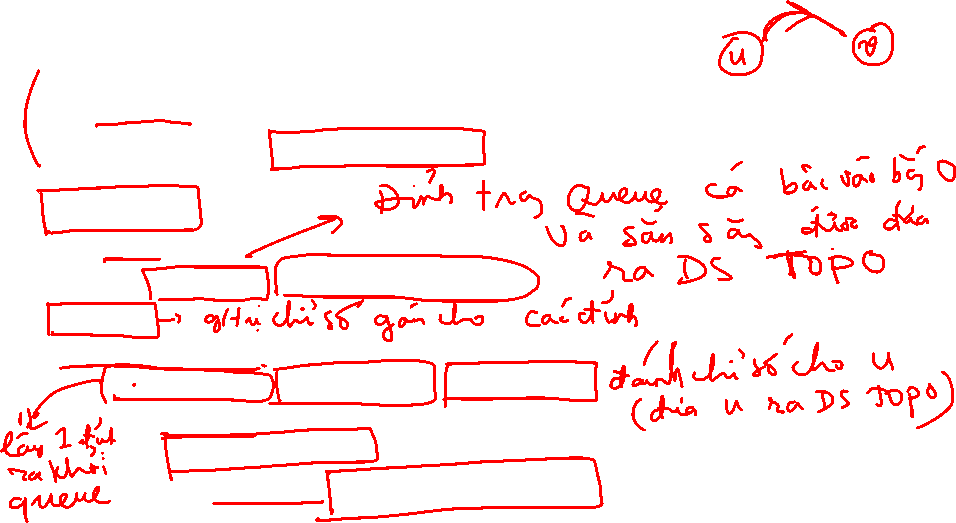 u v
Đỉnh trong Queue có bậc vào bằng 0
và sẵn sàng được đưa
ra DS TOPO
giá trị chỉ số gán cho các đỉnh
đánh chỉ số cho u
(đưa u ra DS TOPO)
lấy 1 đỉnh
ra khỏi
queue